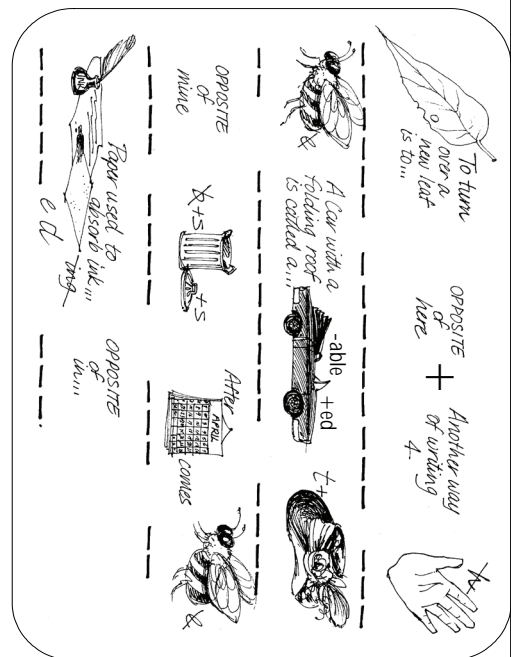 To turn
over a
new leaf
is to...
OPPOSITE
of
here
+
Another way
of writing
4
A Car with a
folding roof
is called a...
-able +ed
t+
OPPOSITE
of
mine
b+s
+s
After
APRIL
comes
INK
Paper used to
absorb ink...
ed ing
OPPOSITE
of
in...